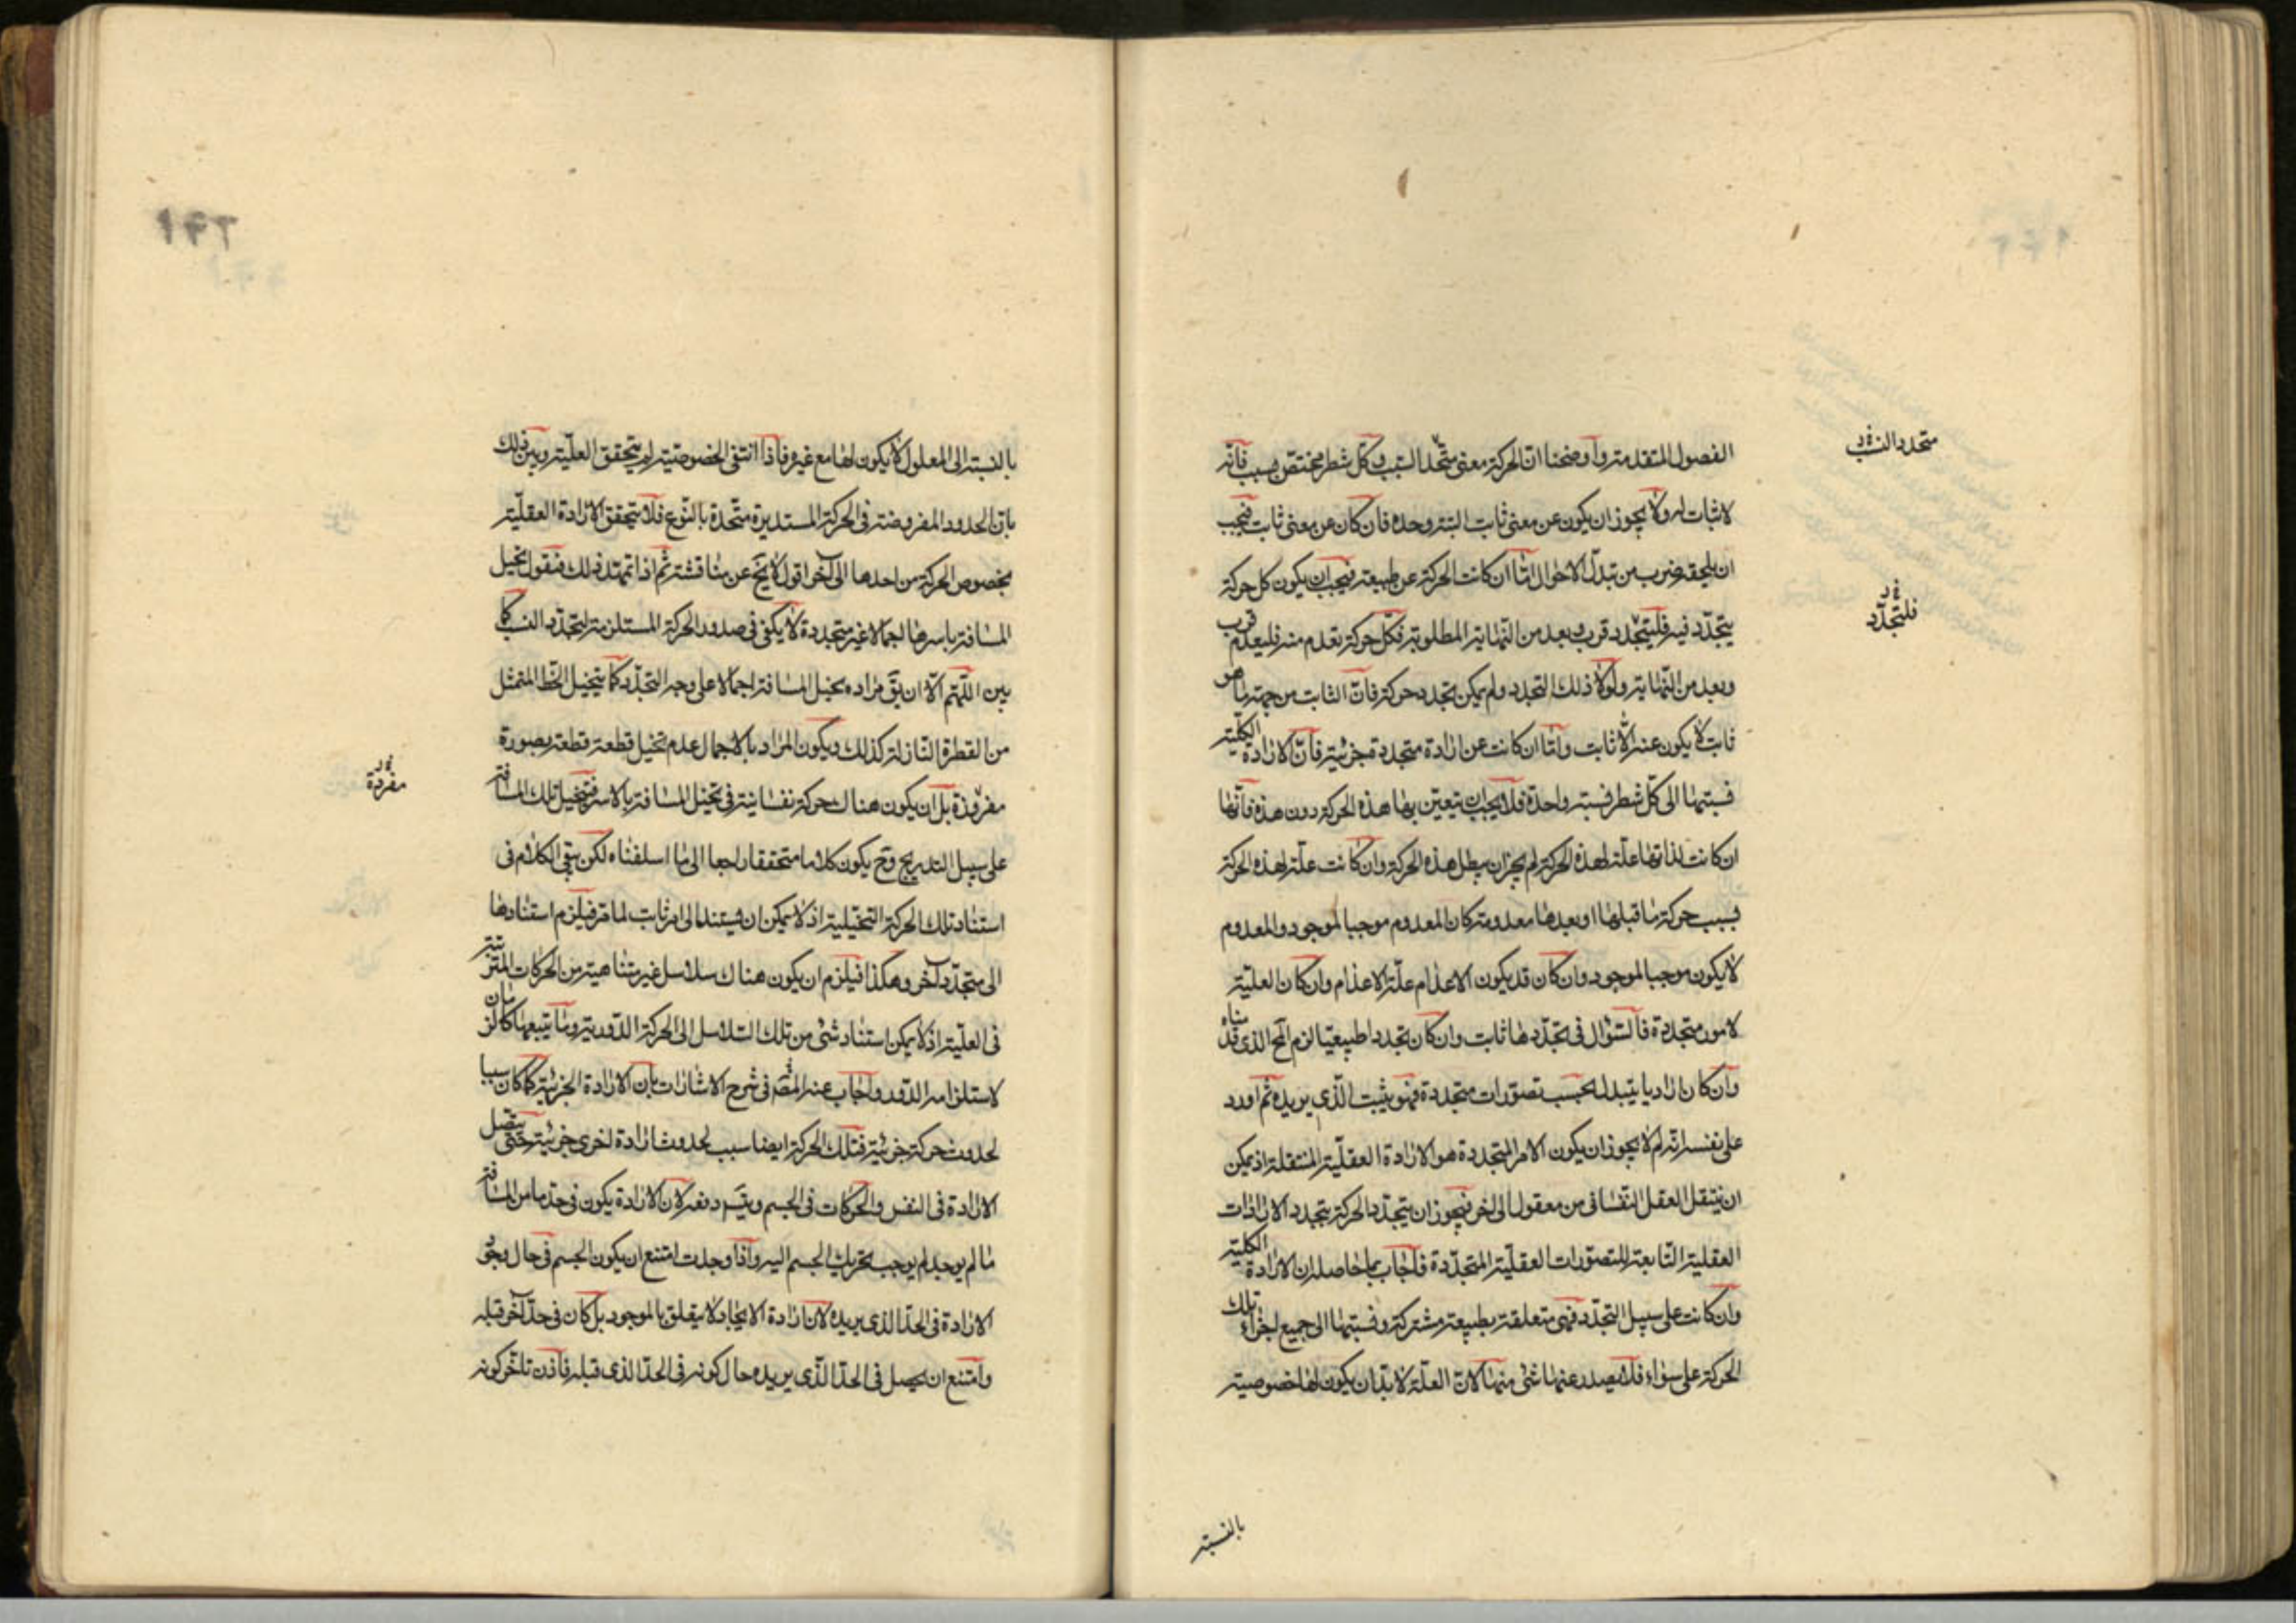 الفصول المتقدمة وأوضحنا ان الحركة معنى متجدد النسب وكل شطر مختص بسبب فانه
لا ثبات له ولا يجوز ان يكون عن معنى ثابت البتة وحده فان كان عن معنى ثابت فيجب
ان يلحقه ضرب من تبدل الاحوال اما ان كانت الحركة عن طبيعة فيجب ان يكون كل حركة
يتجدد فيه فلتجدد قرب وبعد من النهاية المطلوبة فكل حركة تعدم منه فليعدم قرب
وبعد من النهاية ولولا ذلك التجدد ولم يكن تجدد حركة فان الثابت من جهة ما هو
ثابت لا يكون عنه الا ثابت واما ان كانت عن ارادة متجددة جزئية فان الارادة الكلية
نسبتها الى كل شطر نسبة واحدة فلا يجب ان يتعين بها هذه الحركة دون هذه فانها
ان كانت لذاتها علة لهذه الحركة لم يجز ان يبطل هذه الحركة وان كانت علة لهذه الحركة
بسبب حركة ما قبلها او بعدها معدومة كان المعدوم موجبا لموجود والمعدوم
لا يكون موجبا لموجود وان كان قد يكون الاعدام علة الاعدام وان كان العلية
لامور متجددة فالسؤال في تجددها ثابت وان كان تجددا طبيعيا لزم المح الذى قدمناه
وان كان اراديا يتبدل بحسب تصورات متجددة فهو يثبت الذى يريده ثم اورد
على نفسه انه لم لا يجوز ان يكون الامر المتجددة هو الارادة العقلية المنتقلة اذ يمكن
ان ينتقل العقل النفسانى من معقول الى اخر فيجوز ان يتجدد الحركة بتجدد الارادات
العقلية التابعة للتصورات العقلية المتجددة فاجاب بما حاصله ان الارادة الكلية
وان كانت على سبيل التجدد فهى متعلقة بطبيعة مشتركة ونسبتها الى جميع اجزاء تلك
الحركة على سواء فلا يصدر عنها شئ منها لان العلة لا بد ان يكون لها خصوصية
بالنسبة
متجدد النسب
فلتجدد
١٩٢
بالنسبة الى المعلول لا يكون لها مع غيره فاذا انتفى الخصوصية لم يتحقق العلية وبين ذلك
بان الحدود المفروضة فى الحركة المستديرة متحدة بالنوع فلا يتحقق الارادة العقلية
بخصوص الحركة من احدها الى آخر اقول لا يخ عن مناقشة ثم اذا تمهد ذلك فنقول تخيل
المسافة باسرها اجمالا غير متجددة لا يكفى فى صدور الحركة المستلزمة لتجدد النسب كما
بين اللهم الا ان يق مراده تخيل المسافة اجمالا على وجه التجدد كما يتخيل الخط المتمثل
من القطرة النازلة كذلك ويكون المراد بالاجمال عدم تخيل قطعة قطعة بصورة
مفروزة بل ان يكون هناك حركة نفسانية فى تخيل المسافة بالاسر فيتخيل تلك المسافة
على سبيل التدريج وح يكون كلاما متحققا راجعا الى ما اسلفناه لكن بقى الكلام فى
استناد تلك الحركة التخيلية اذ لا يمكن ان يستند الى امر ثابت لما مر فيلزم استنادها
الى متجدد آخر وهكذا فيلزم ان يكون هناك سلاسل غير متناهية من الحركات المترتبة
فى العلية اذ لا يمكن استناد شئ من تلك السلاسل الى الحركة الدورية وما يتبعها كالزمان
لاستلزامه الدور واجاب عنه المص فى شرح الاشارات بان الارادة الجزئية كما كان سببا
لحدوث حركة جزئية فتلك الحركة ايضا سبب لحدوث ارادة اخرى جزئية حتى يتصل
الارادة فى النفس والحركات فى الجسم ويقسم دفعه لان الارادة يكون فى حد ما من المسافة
ما لم يوجد لم يوجب تحريك الجسم اليه واذا وجدت امتنع ان يكون الجسم فى حال وجود
الارادة فى الحد الذى يريده لان ارادة الايجاد لا يتعلق بالموجود بل كان فى حد آخر قبله
وامتنع ان يحصل فى الحد الذى يريده حال كونه فى الحد الذى قبله فاذن تاخر كونه
مفردة